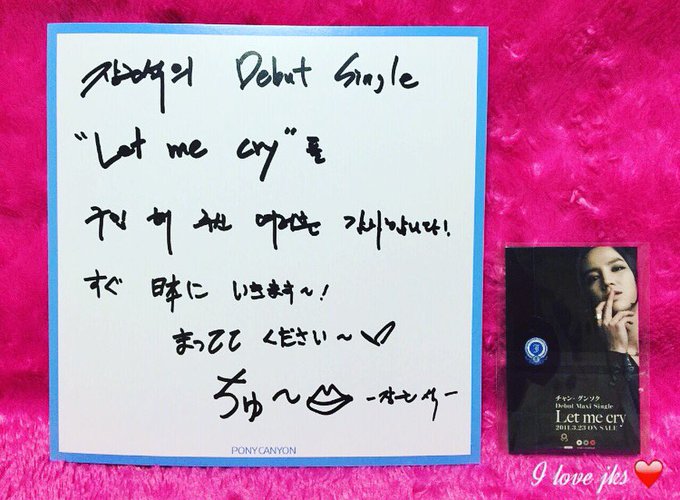 장근석의 Debut Single
"Let me cry"를
구입 해 주신 여러분 감사합니다!
すぐ 日本に いきます～!
まってて ください～
ちゅ～ -장근석-
PONY CANYON
チャン・グンソク
Debut Maxi Single
Let me cry
2011.3.23 ON SALE
I love jks